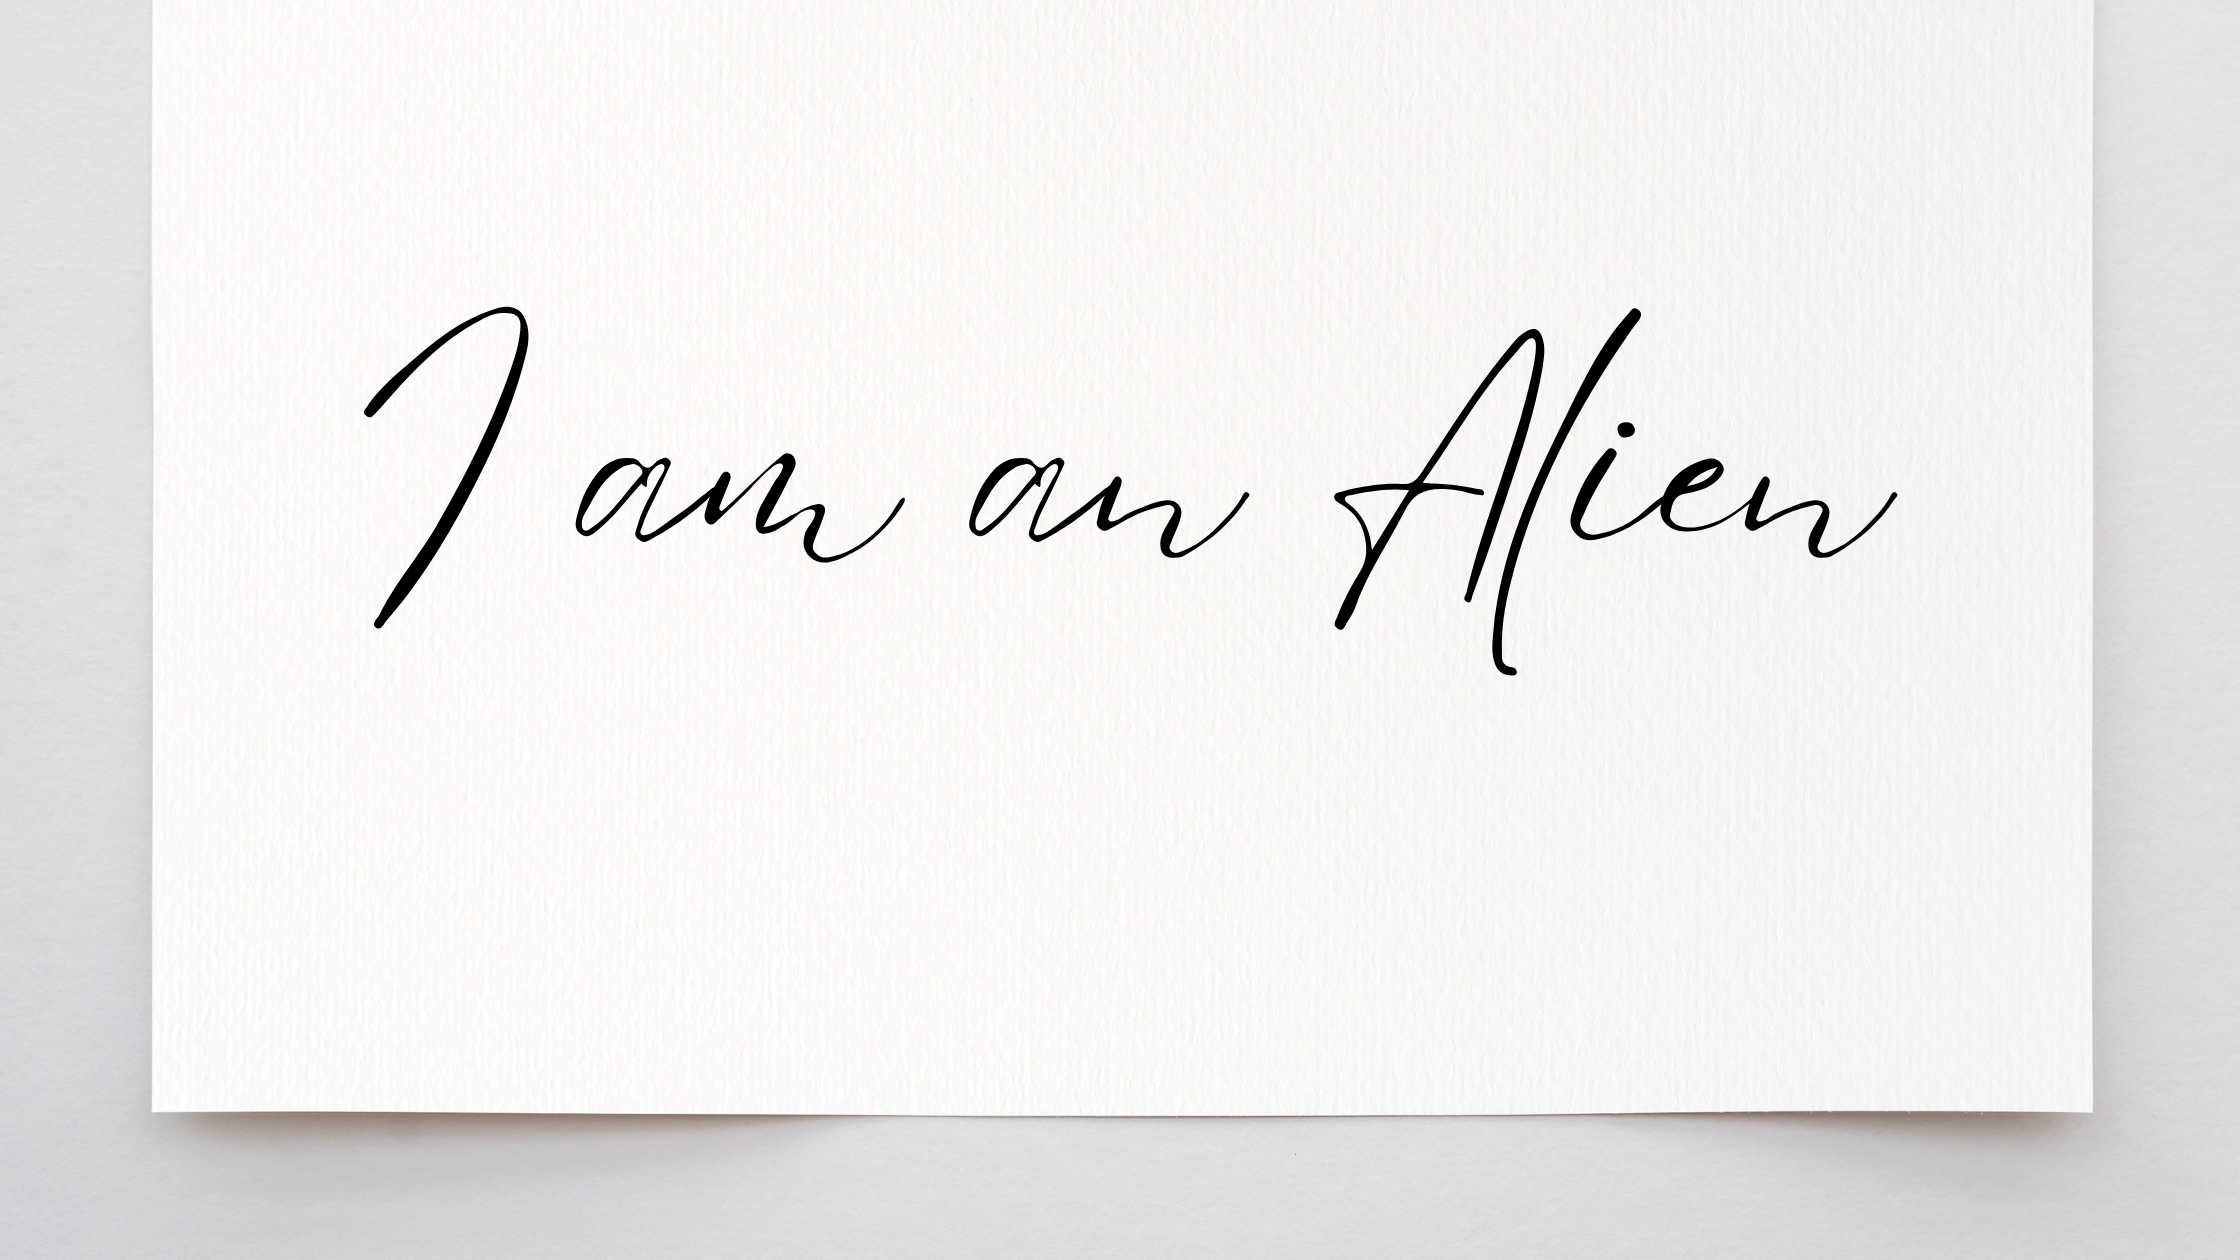 I am an Alien